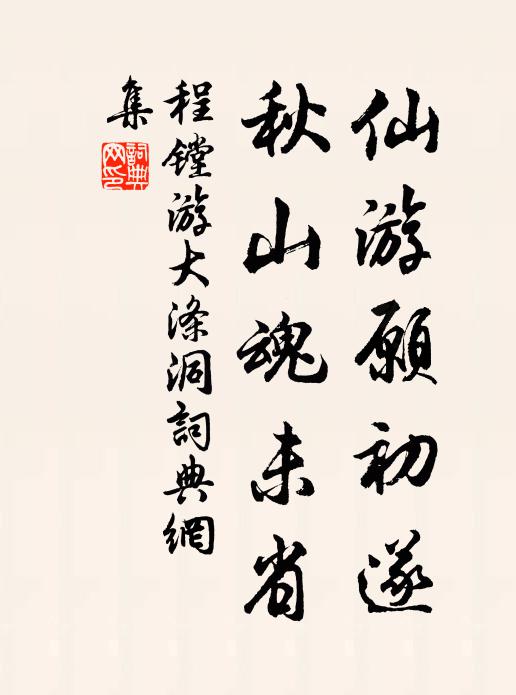 仙游願初遂
秋山魂未省
程鏜游大滌洞詞典網
集
詞典網印